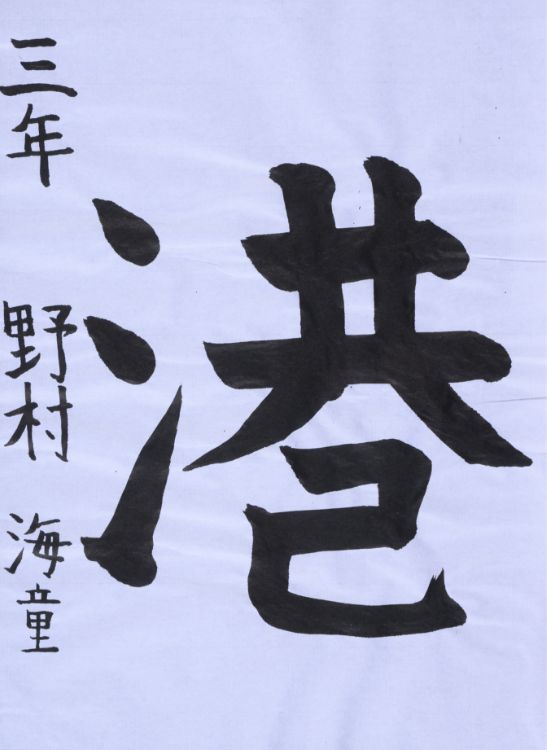 港
三年 野村 海童